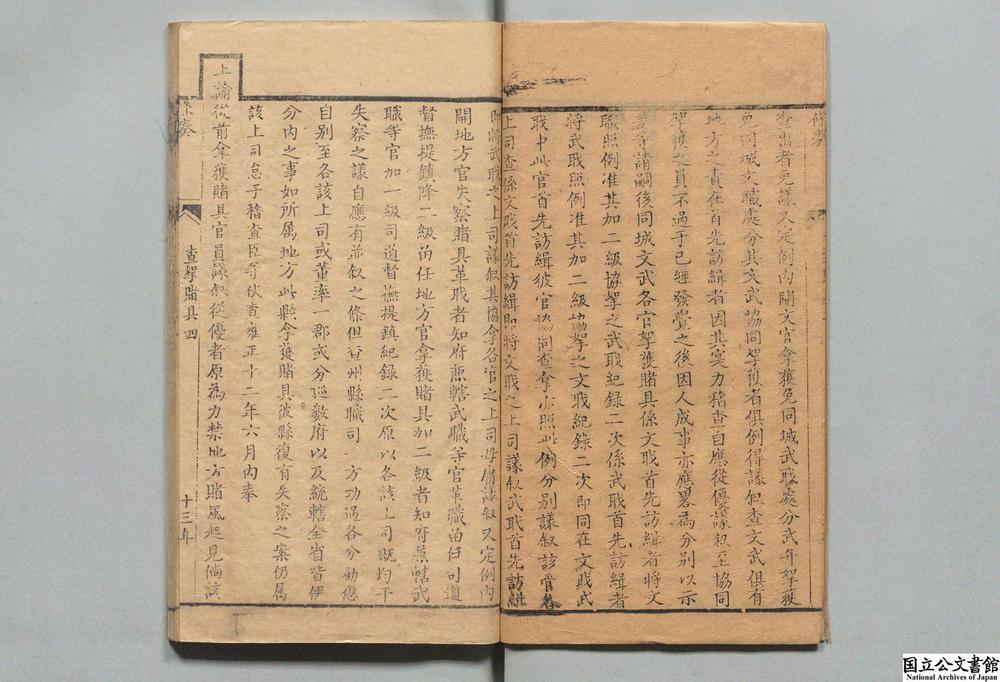 條奏
查出者免議又定例內開文官拿獲免同城武職處分武弁拏獲
免同城文職處分其文武協同拏獲者俱例得議叙查文武俱有
地方之責在首先訪緝者因其實力稽查自應從優議叙至協同
拏獲之員不過于已經發覺之後因人成事亦應畧為分別以示
等請嗣後同城文武各官拏獲賭具係文職首先訪緝者將文
職照例准其加二級協拏之武職紀録一次係武職首先訪緝者
將武職照例准其加二級協拏之文職紀錄二次即同在文職武
職中此官首先訪緝彼官協同查拿亦照此例分別議叙該管各
上司查係文職首先訪緝即將文職之上司議叙武職首先訪緝
即將武職之上司議叙其協拿各官之上司毋庸議叙又定例內
開地方官失察賭具革職者知府兼轄武職等官革職留任司道
督撫提鎮降二級留任地方官拿獲賭具加二級者知府兼轄武
職等官加一級司道督撫提鎮紀録二次原以各該上司既均干
失察之議自應有並叙之條但查州縣職司一方功過各分勸懲
自別至各該上司或董率一郡或分巡数府以及統轄全省皆伊
分內之事如所属地方此縣拿獲賭具彼縣復有失察之案仍属
該上司怠于稽查臣等伏查雍正十二年六月內奉
上諭從前拿獲賭具官員議叙從優者原為力禁地方賭風起見倘該
條奏
查拏賭具 四
十三年
国立公文書館
National Archives of Japan